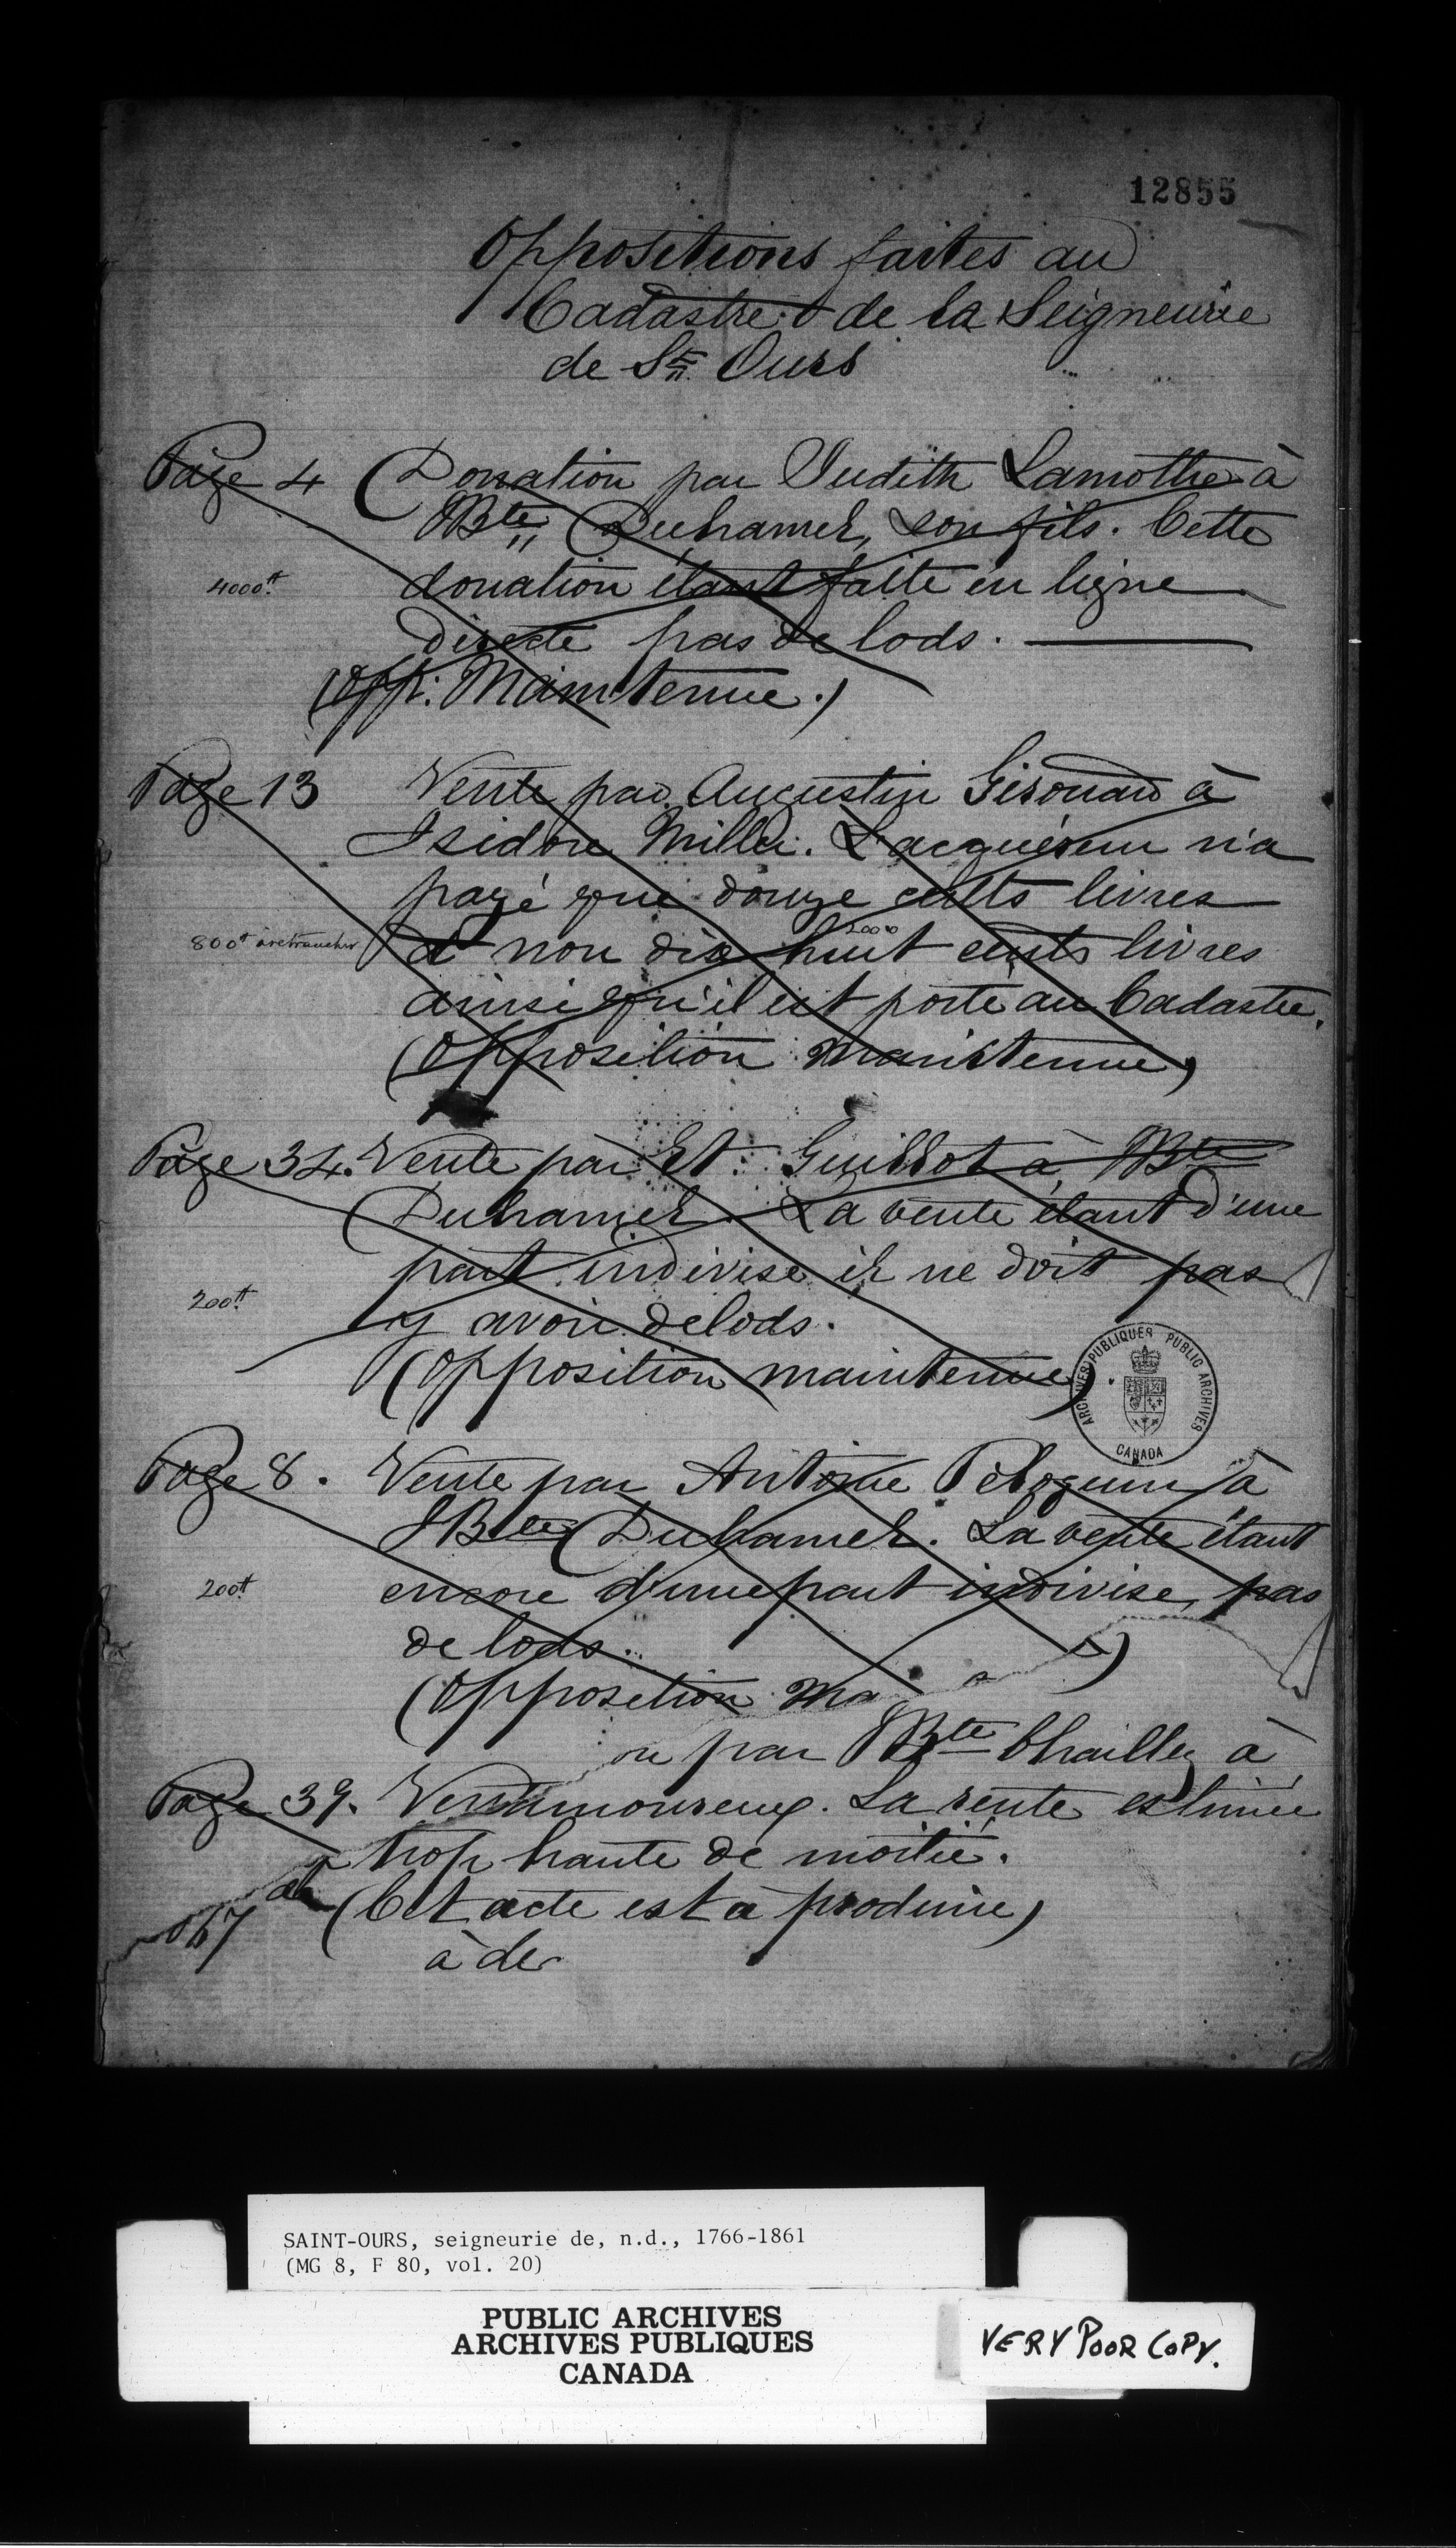 12855
Oppositions faites au
Cadastre de la Seigneurie
de St. Ours
Page 4 Donation par Judith Lamothe à
JBte. Duhamel, son fils. Cette
4000tt donation étant faite en ligne
directe pas de lods.
(Opp: Maintenue.)
Page 13 Vente par Augustin Girouard à
Isidore Miller. L'acquéreur n'a
payé que douze cents livres
2000
800tt à retrancher et non dix huit cents livres
ainsi qu'il est porté au Cadastre.
(Opposition maintenue)
Page 34. Vente par Et. Guillot à JBte
Duhamel. La vente étant d'une
part indivise il ne doit pas
200tt
y avoir de lods.
(Opposition maintenue).
ARCHIVES PUBLIQUES PUBLIC ARCHIVES
CANADA
Page 8. Vente par Antoine Péloquin à
JBte Duhamel. La vente étant
200tt encore d'une part indivise, pas
de lods.
(Opposition Ma
par JBte Chailler à
Page 39. amoureux. La rente estimée
trop haute de moitié.
(Cet acte est à produire)
à de
SAINT-OURS, seigneurie de, n.d., 1766-1861
(MG 8, F 80, vol. 20)
PUBLIC ARCHIVES
ARCHIVES PUBLIQUES
CANADA
VERY POOR COPY.